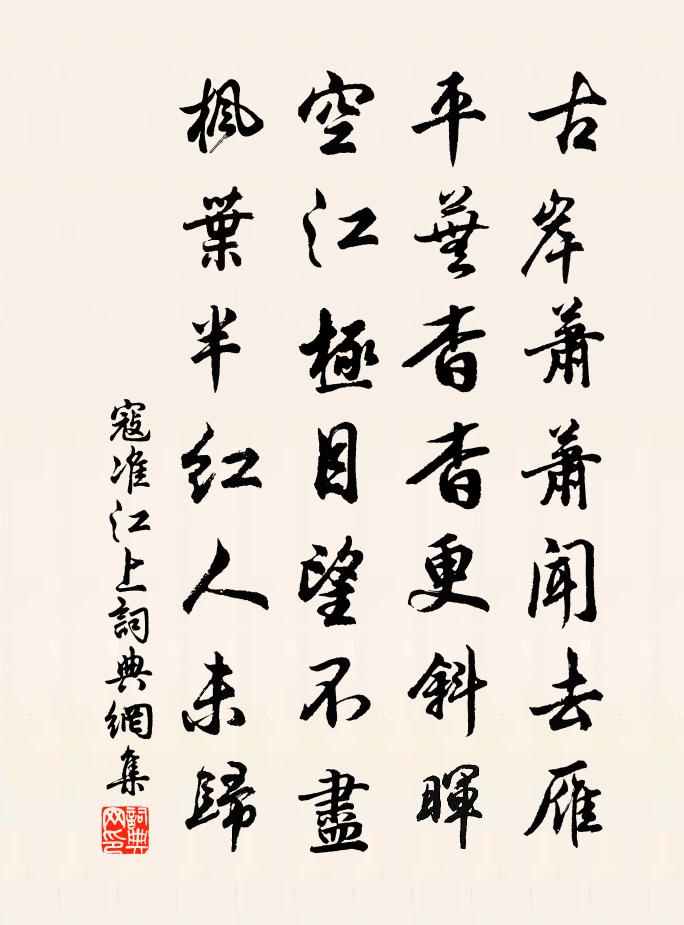 古岸蕭蕭聞去雁
平蕪杳杳更斜暉
空江極目望不盡
楓葉半紅人未歸
寇准江上詞典網集
詞典
网印